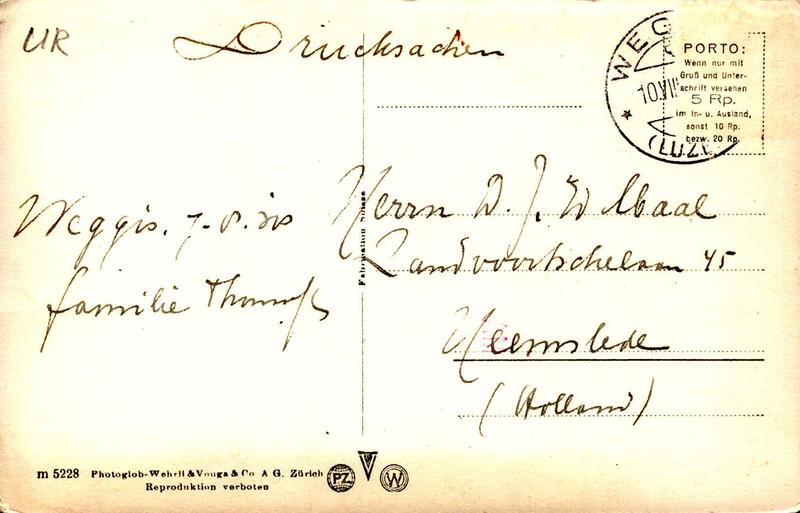 UR
Drucksachen
WEG
10.VII
(LUZE
PORTO:
Wenn nur mit
Gruß und Unter-
schrift versehen
5 Rp.
im In- u. Ausland,
sonst 10 Rp.
bezw. 20 Rp.
Weggis. 7.8.30
familie
Herrn D. J.
Zandvoortschelaan 45
Heemstede
(Holland)
Fabrication Suisse
m 5228 Photoglob-Wehrli & Vouga & Co A G. Zürich
Reproduktion verboten
PZ
W